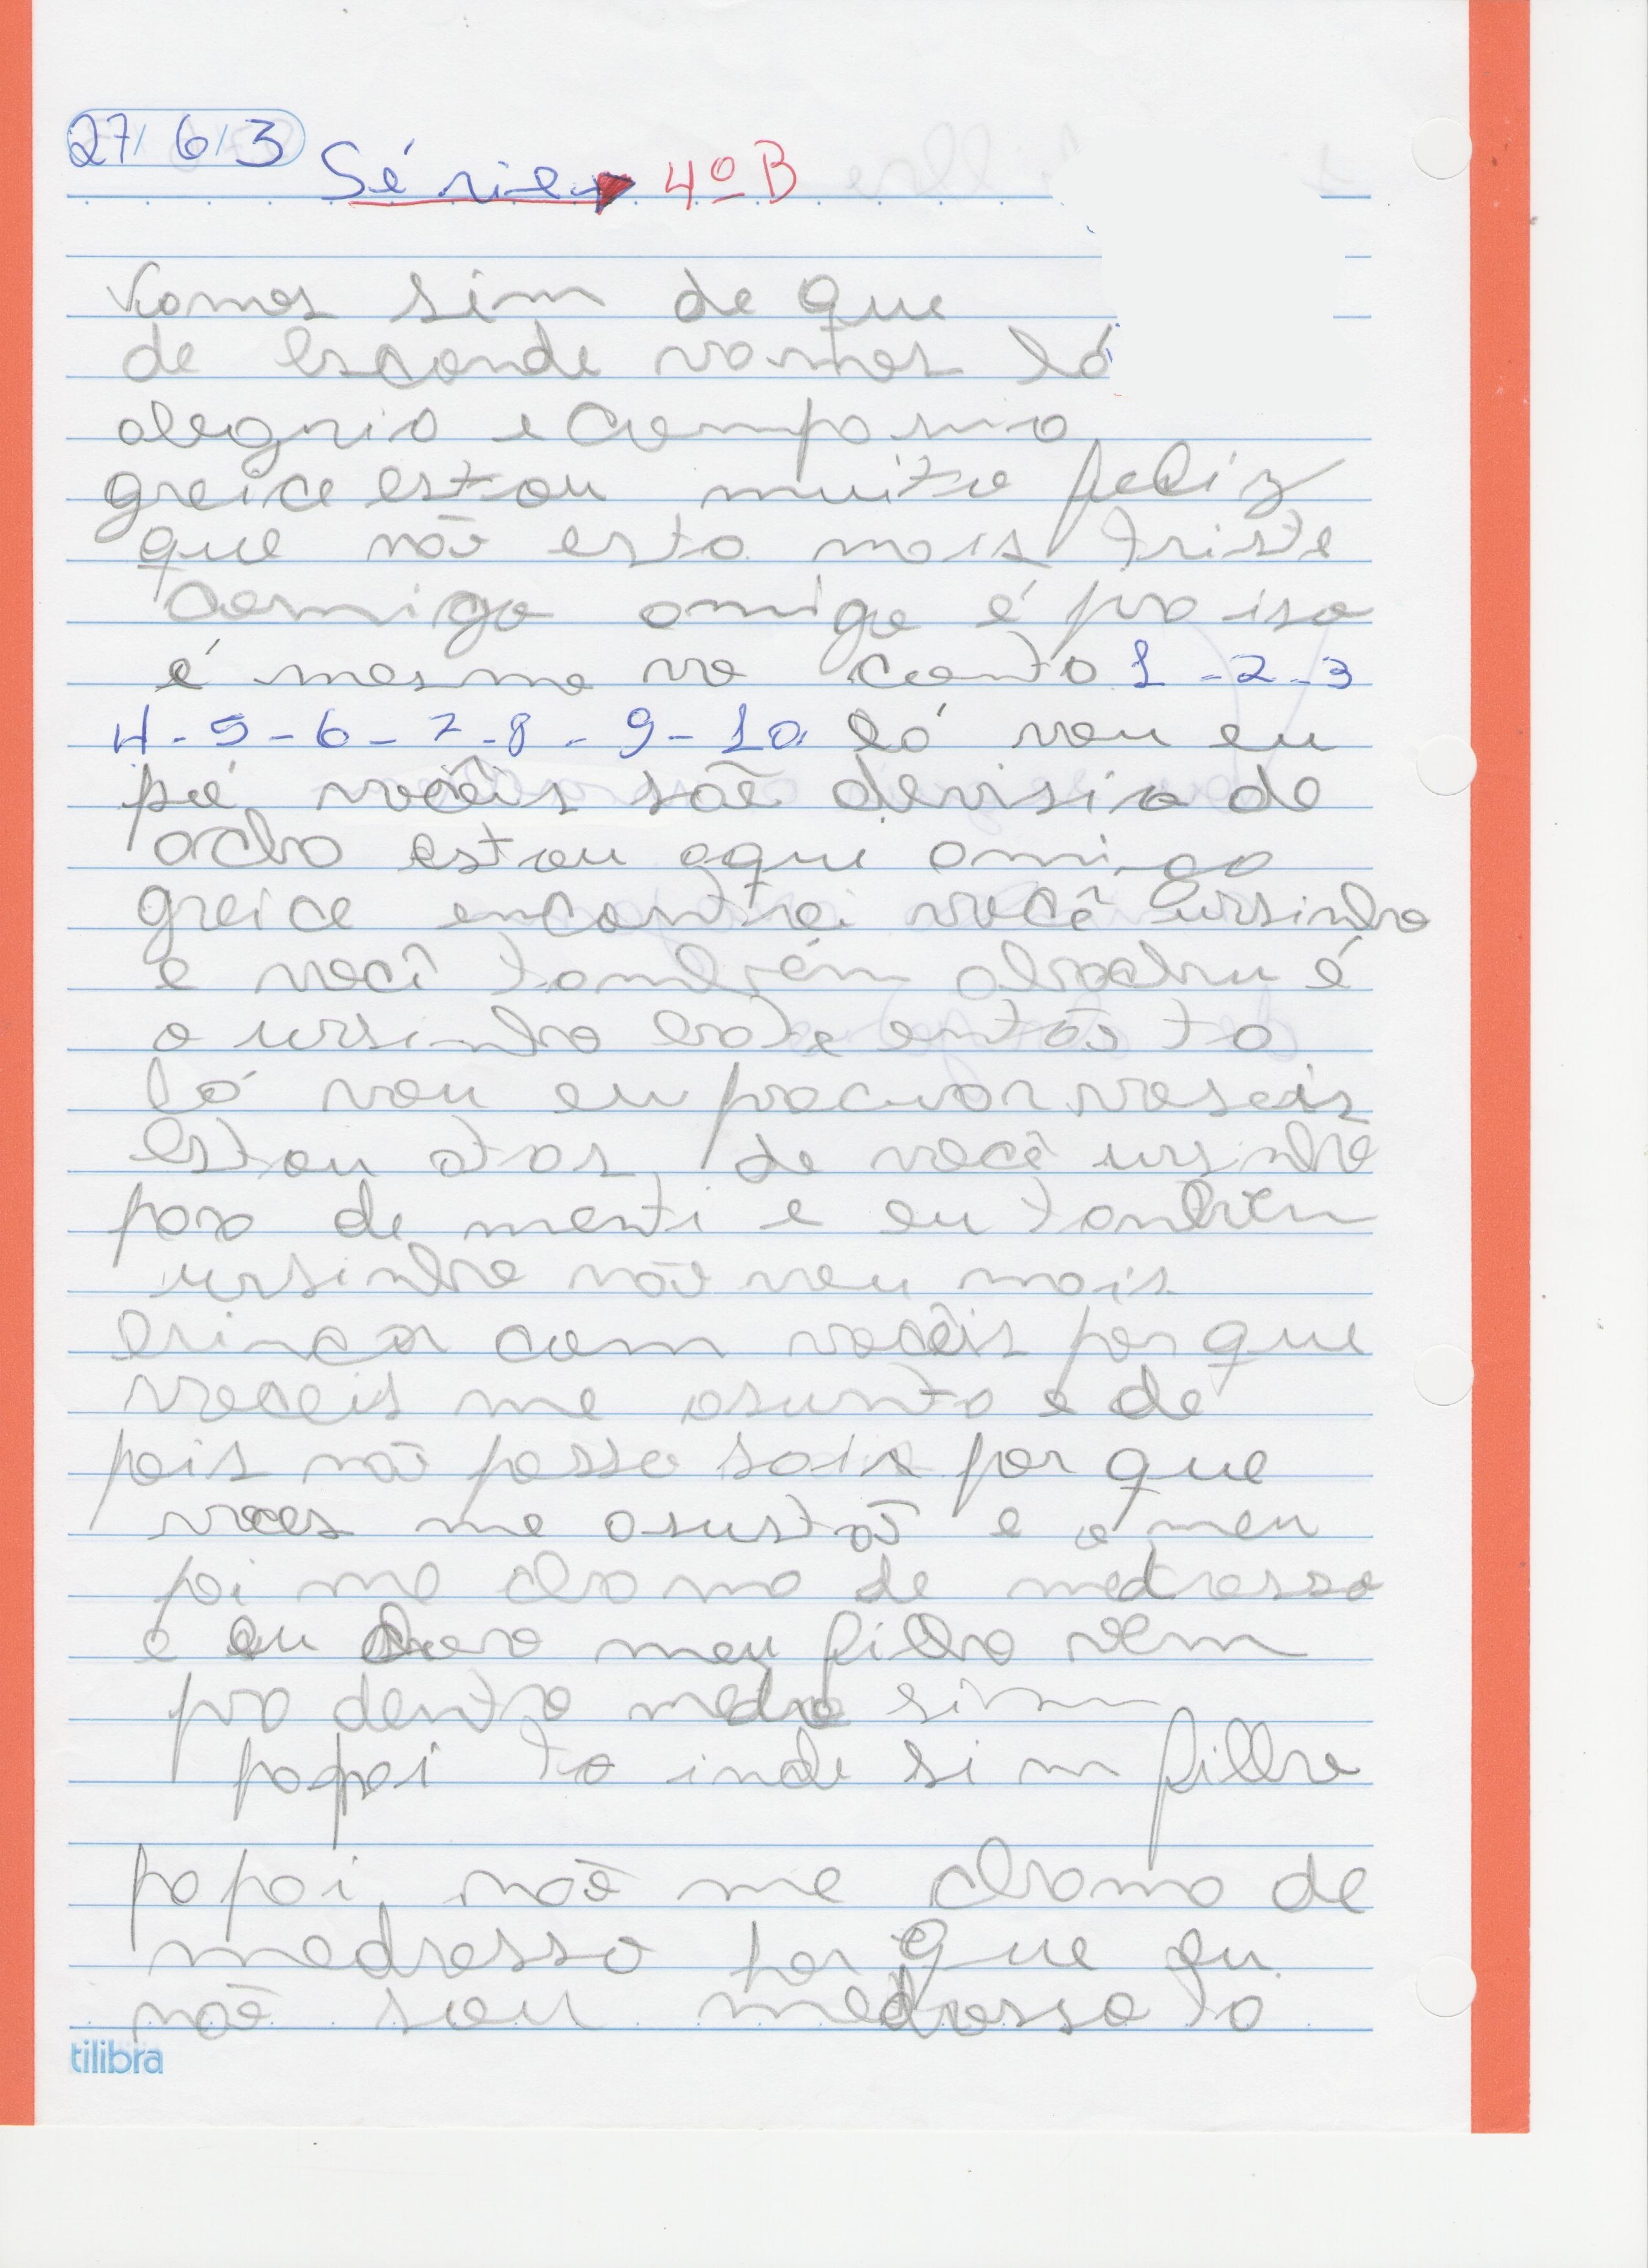 27/ 6/ 3
Série → 4º B
Vamos sim de que
de esconde vamos lá
alegria e
greice estou muito feliz
que não esta mais triste
comigo amiga é pra iso
é mesmo vo conta 1 - 2 - 3
4 - 5 - 6 - 7 - 8 - 9 - 10 lá vou eu
vocêis são de
acha estou aqui amiga
greice encontrei você ursinho
e você também é
o ursinho bate então ta
lá vou eu procurar voseis
estou atas de você ursinho
para de menti e eu também
ursinho não vou mais
brincar com vocêis por que
voceis me asunta e de
pois não posso sair por que
voces me asustão e o meu
pai me chama de medrosso
e eu choro meu filho vem
pra dentro medro sim
papai to indo sim filho
papai não me chama de
medrosso por que eu
não sou medrosso ta
tilibra